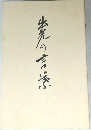 出光の言葉